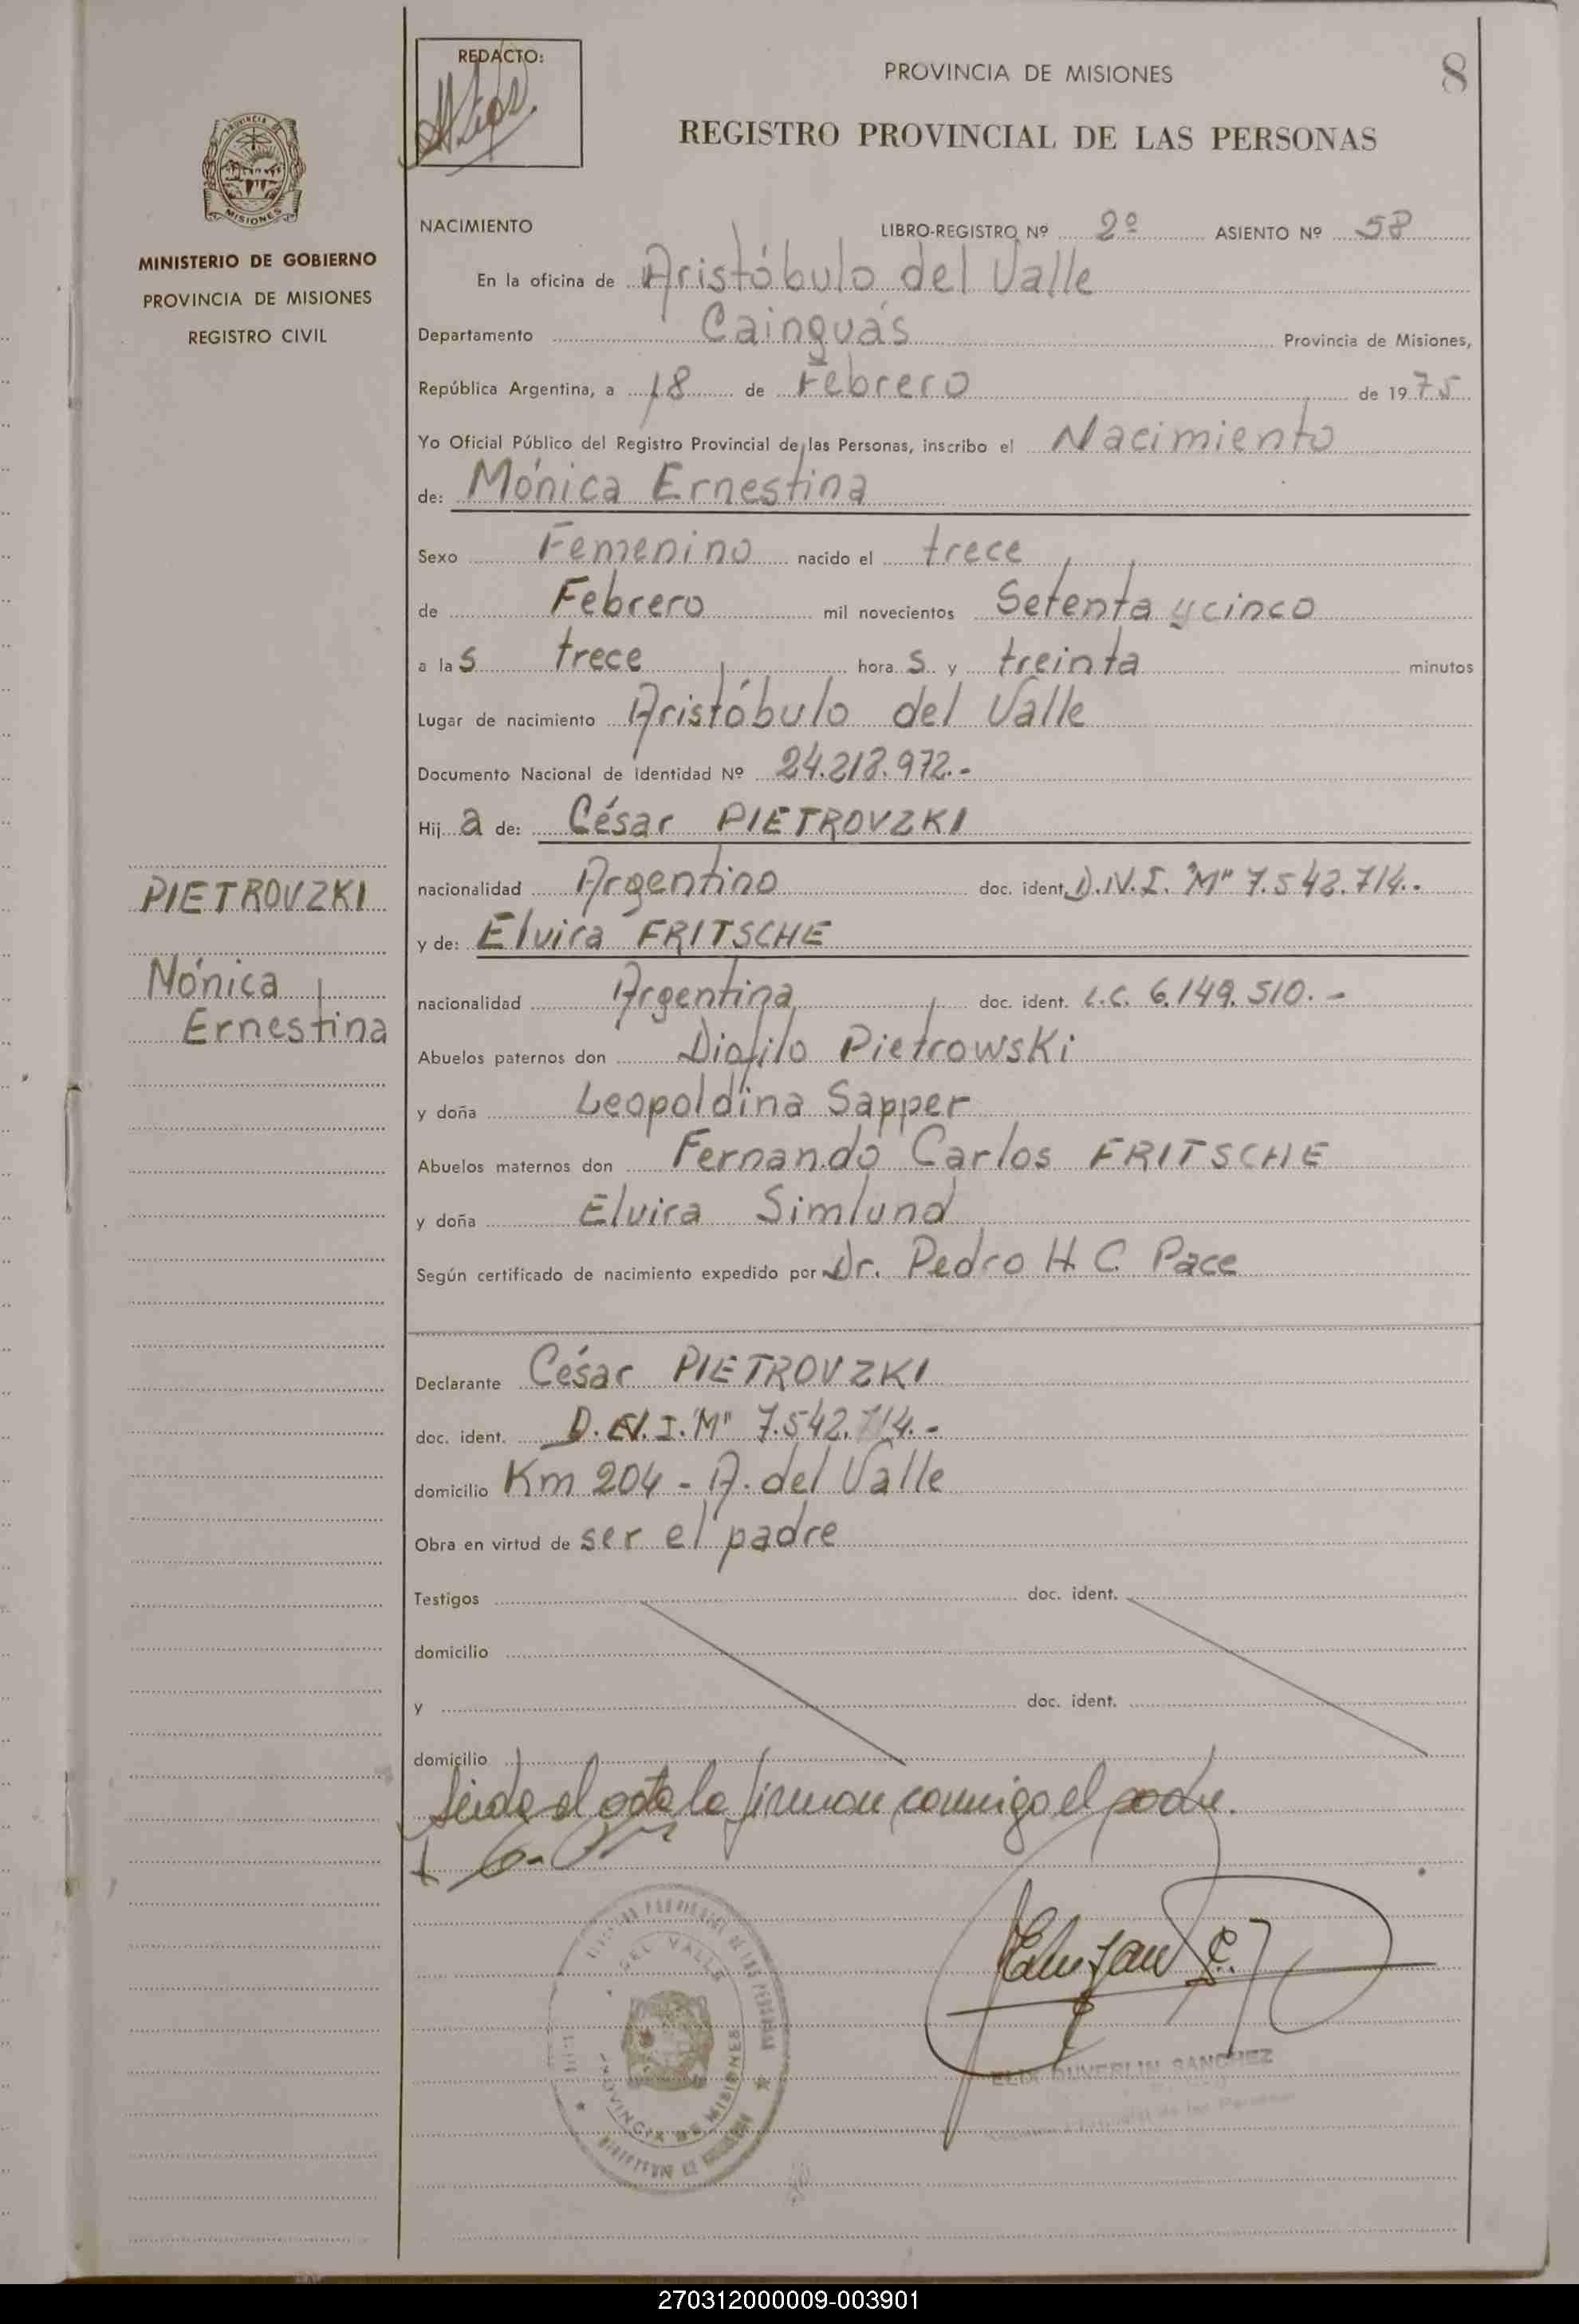 REDACTO:
PROVINCIA DE MISIONES
8
REGISTRO PROVINCIAL DE LAS PERSONAS
PROVINCIA DE
MISIONES
MINISTERIO DE GOBIERNO
PROVINCIA DE MISIONES
REGISTRO CIVIL
NACIMIENTO LIBRO-REGISTRO Nº 2º ASIENTO Nº 58
En la oficina de Aristóbulo del Valle
Departamento Cainguás Provincia de Misiones,
República Argentina, a 18 de Febrero de 1975
Yo Oficial Público del Registro Provincial de las Personas, inscribo el Nacimiento
de: Mónica Ernestina
Sexo Femenino nacido el trece
de Febrero mil novecientos Setenta y cinco
a las trece horas y treinta minutos
Lugar de nacimiento Aristóbulo del Valle
Documento Nacional de Identidad Nº 24.218.972.-
Hija de: César PIETROVZKI
PIETROVZKI
Mónica
Ernestina
nacionalidad Argentino doc. ident. D.N.I. "M" 7.542.714.-
y de: Elvira FRITSCHE
nacionalidad Argentina doc. ident. L.C. 6.149.510.-
Abuelos paternos don Diofilo Pietrowski
y doña Leopoldina Sapper
Abuelos maternos don Fernando Carlos FRITSCHE
y doña Elvira Simlund
Según certificado de nacimiento expedido por Dr. Pedro H. C. Pace
Declarante César PIETROVZKI
doc. ident. D.N.I. "M" 7.542.714.-
domicilio Km 204 - A. del Valle
Obra en virtud de ser el padre
Testigos doc. ident.
domicilio
y doc. ident.
domicilio
Leida el acta la firman conmigo el padre.
DEL VALLE
PROVINCIA DE MISIONES
SANCHEZ
270312000009-003901